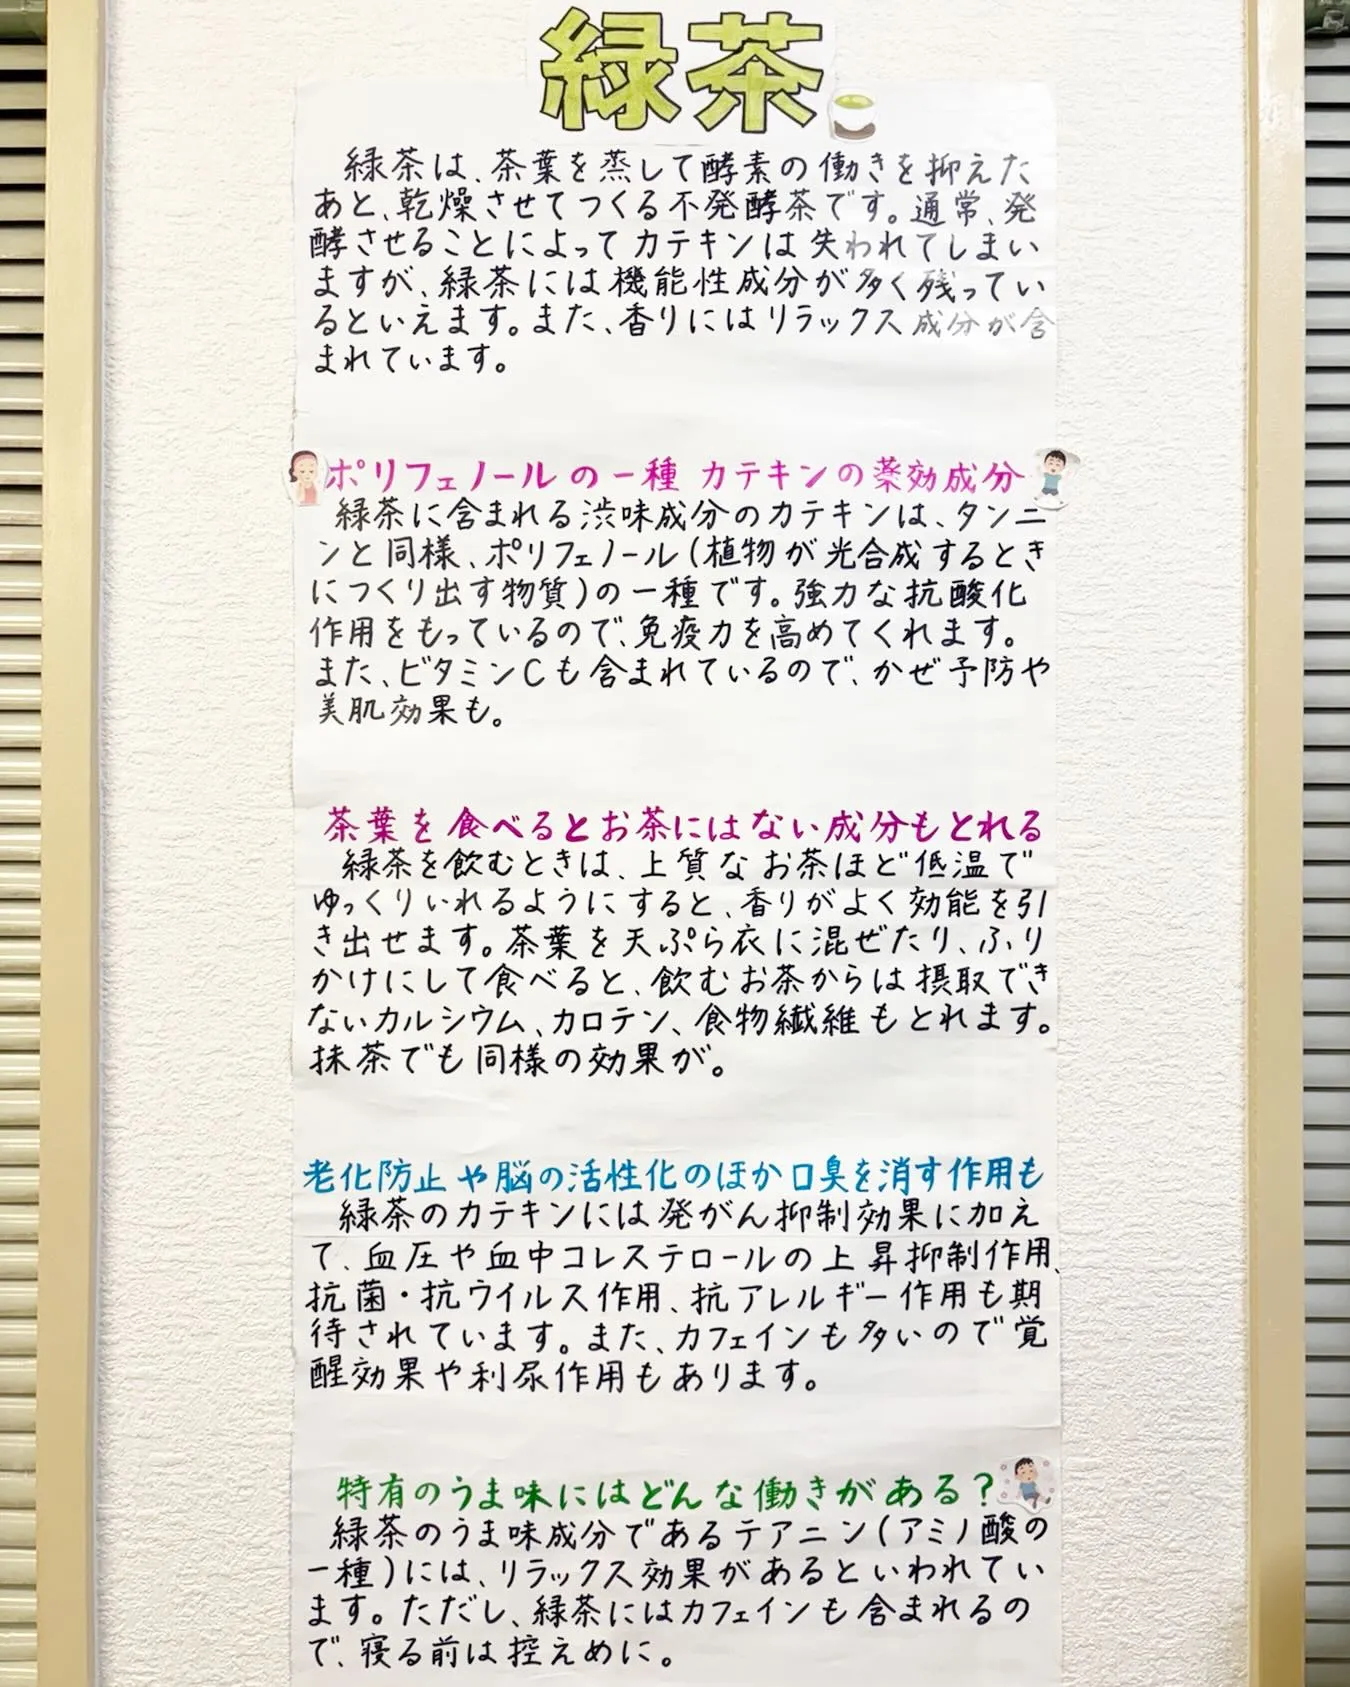 緑茶
緑茶は、茶葉を蒸して酵素の働きを抑えた
あと、乾燥させてつくる不発酵茶です。通常、発
酵させることによってカテキンは失われてしまい
ますが、緑茶には機能性成分が多く残ってい
るといえます。また、香りにはリラックス成分が含
まれています。
ポリフェノールの一種 カテキンの薬効成分
緑茶に含まれる渋味成分のカテキンは、タンニ
ンと同様、ポリフェノール(植物が光合成するとき
につくり出す物質)の一種です。強力な抗酸化
作用をもっているので、免疫力を高めてくれます。
また、ビタミンCも含まれているので、かぜ予防や
美肌効果も。
茶葉を食べるとお茶にはない成分もとれる
緑茶を飲むときは、上質なお茶ほど低温で
ゆっくりいれるようにすると、香りがよく効能を引
き出せます。茶葉を天ぷら衣に混ぜたり、ふり
かけにして食べると、飲むお茶からは摂取でき
ないカルシウム、カロテン、食物繊維もとれます。
抹茶でも同様の効果が。
老化防止や脳の活性化のほか口臭を消す作用も
緑茶のカテキンには発がん抑制効果に加え
て、血圧や血中コレステロールの上昇抑制作用、
抗菌・抗ウイルス作用、抗アレルギー作用も期
待されています。また、カフェインも多いので覚
醒効果や利尿作用もあります。
特有のうま味にはどんな働きがある?
緑茶のうま味成分であるテアニン(アミノ酸の
一種)には、リラックス効果があるといわれてい
ます。ただし、緑茶にはカフェインも含まれるの
で、寝る前は控えめに。